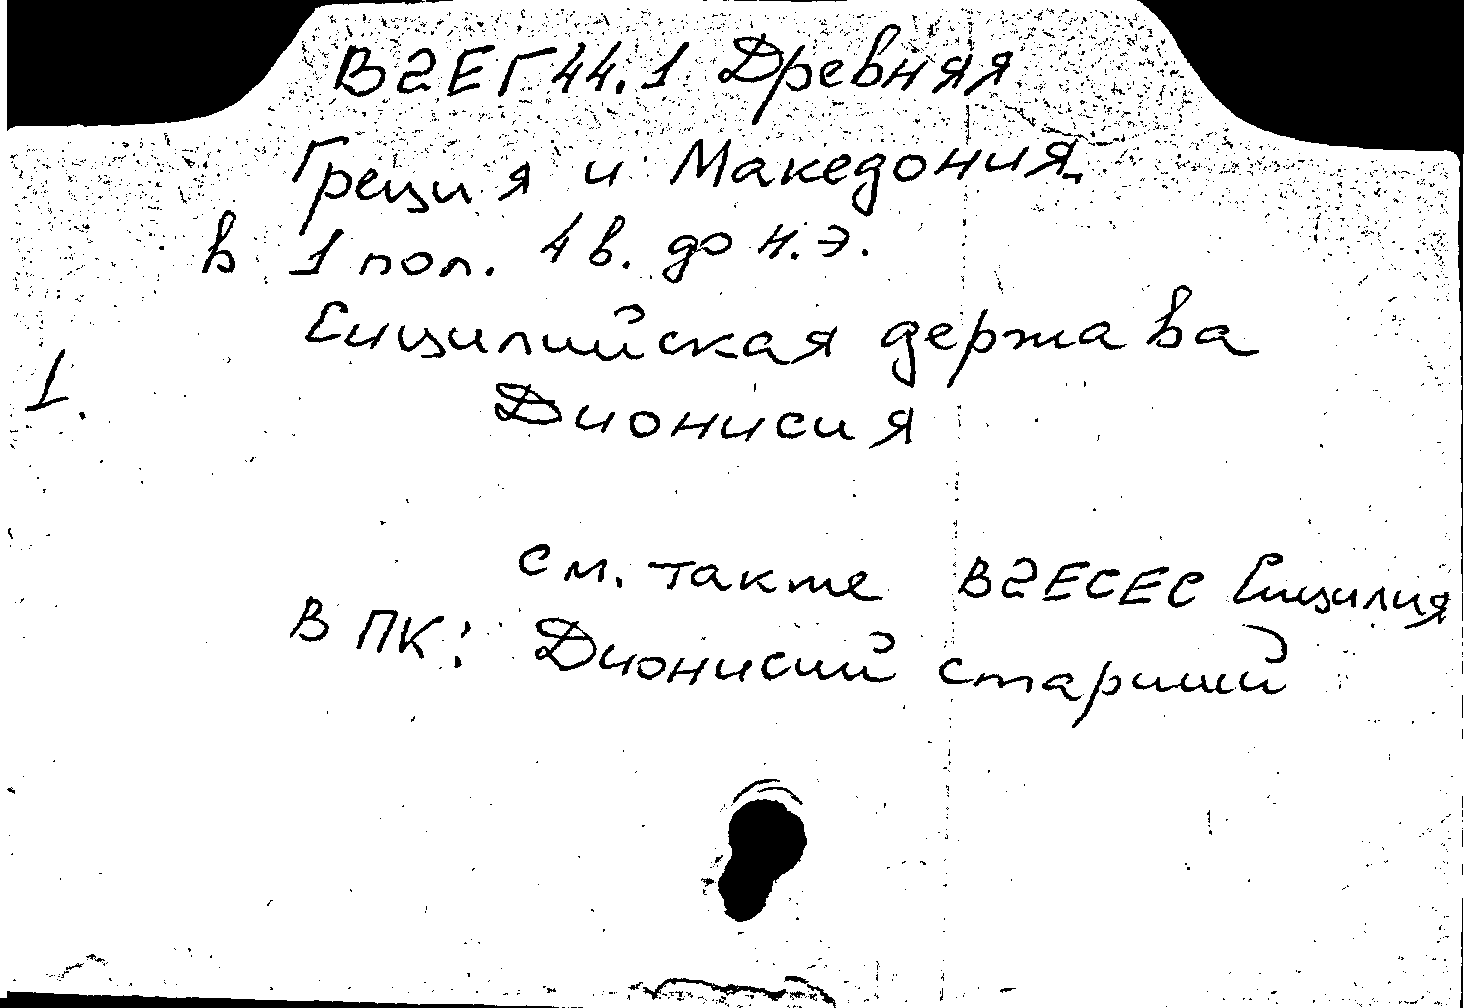 В2ЕГ44.1 Древняя
Греция и Македония
в 1 пол. 4 в. до н.э.
Сицилийская держава
1.
Дионисия
см. также В2ЕСЕС Сицилия
В ПК: Дионисий старший